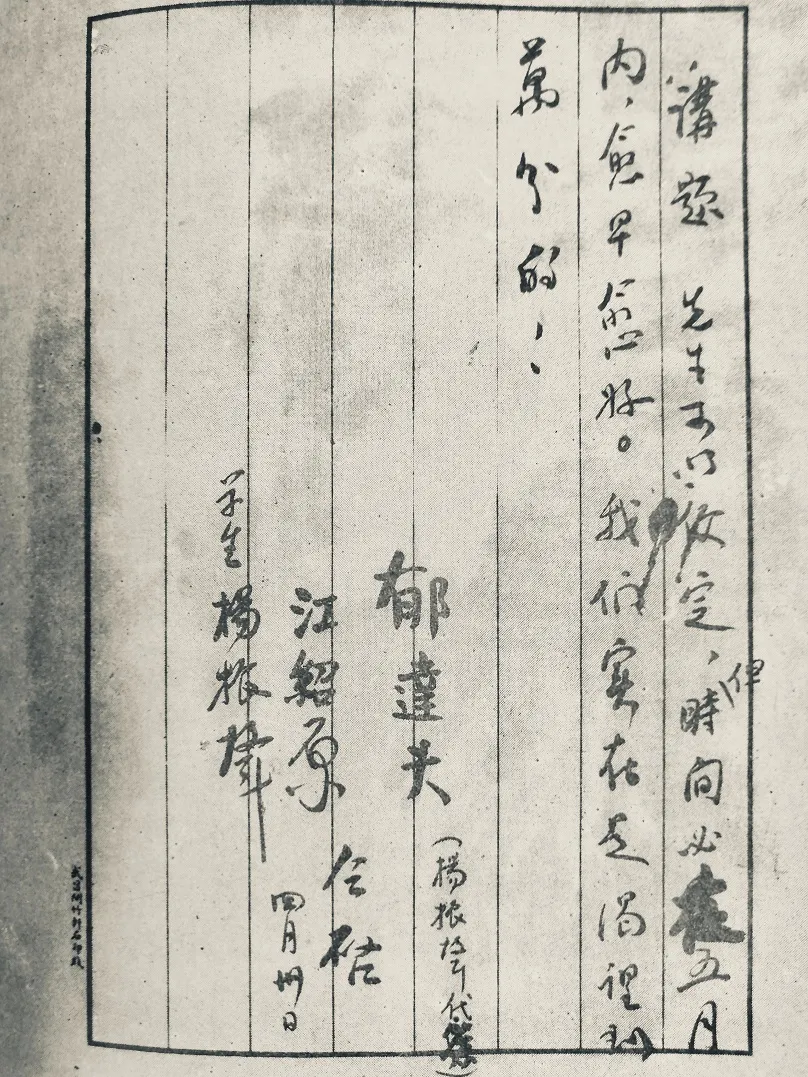 講題 先生可以改定，時间必在五月
内，愈早愈好。我们实在是渴望到
萬分的！、
郁達夫
（楊振聲代簽）
江紹原
仝啓
四月卅日
学生楊振聲